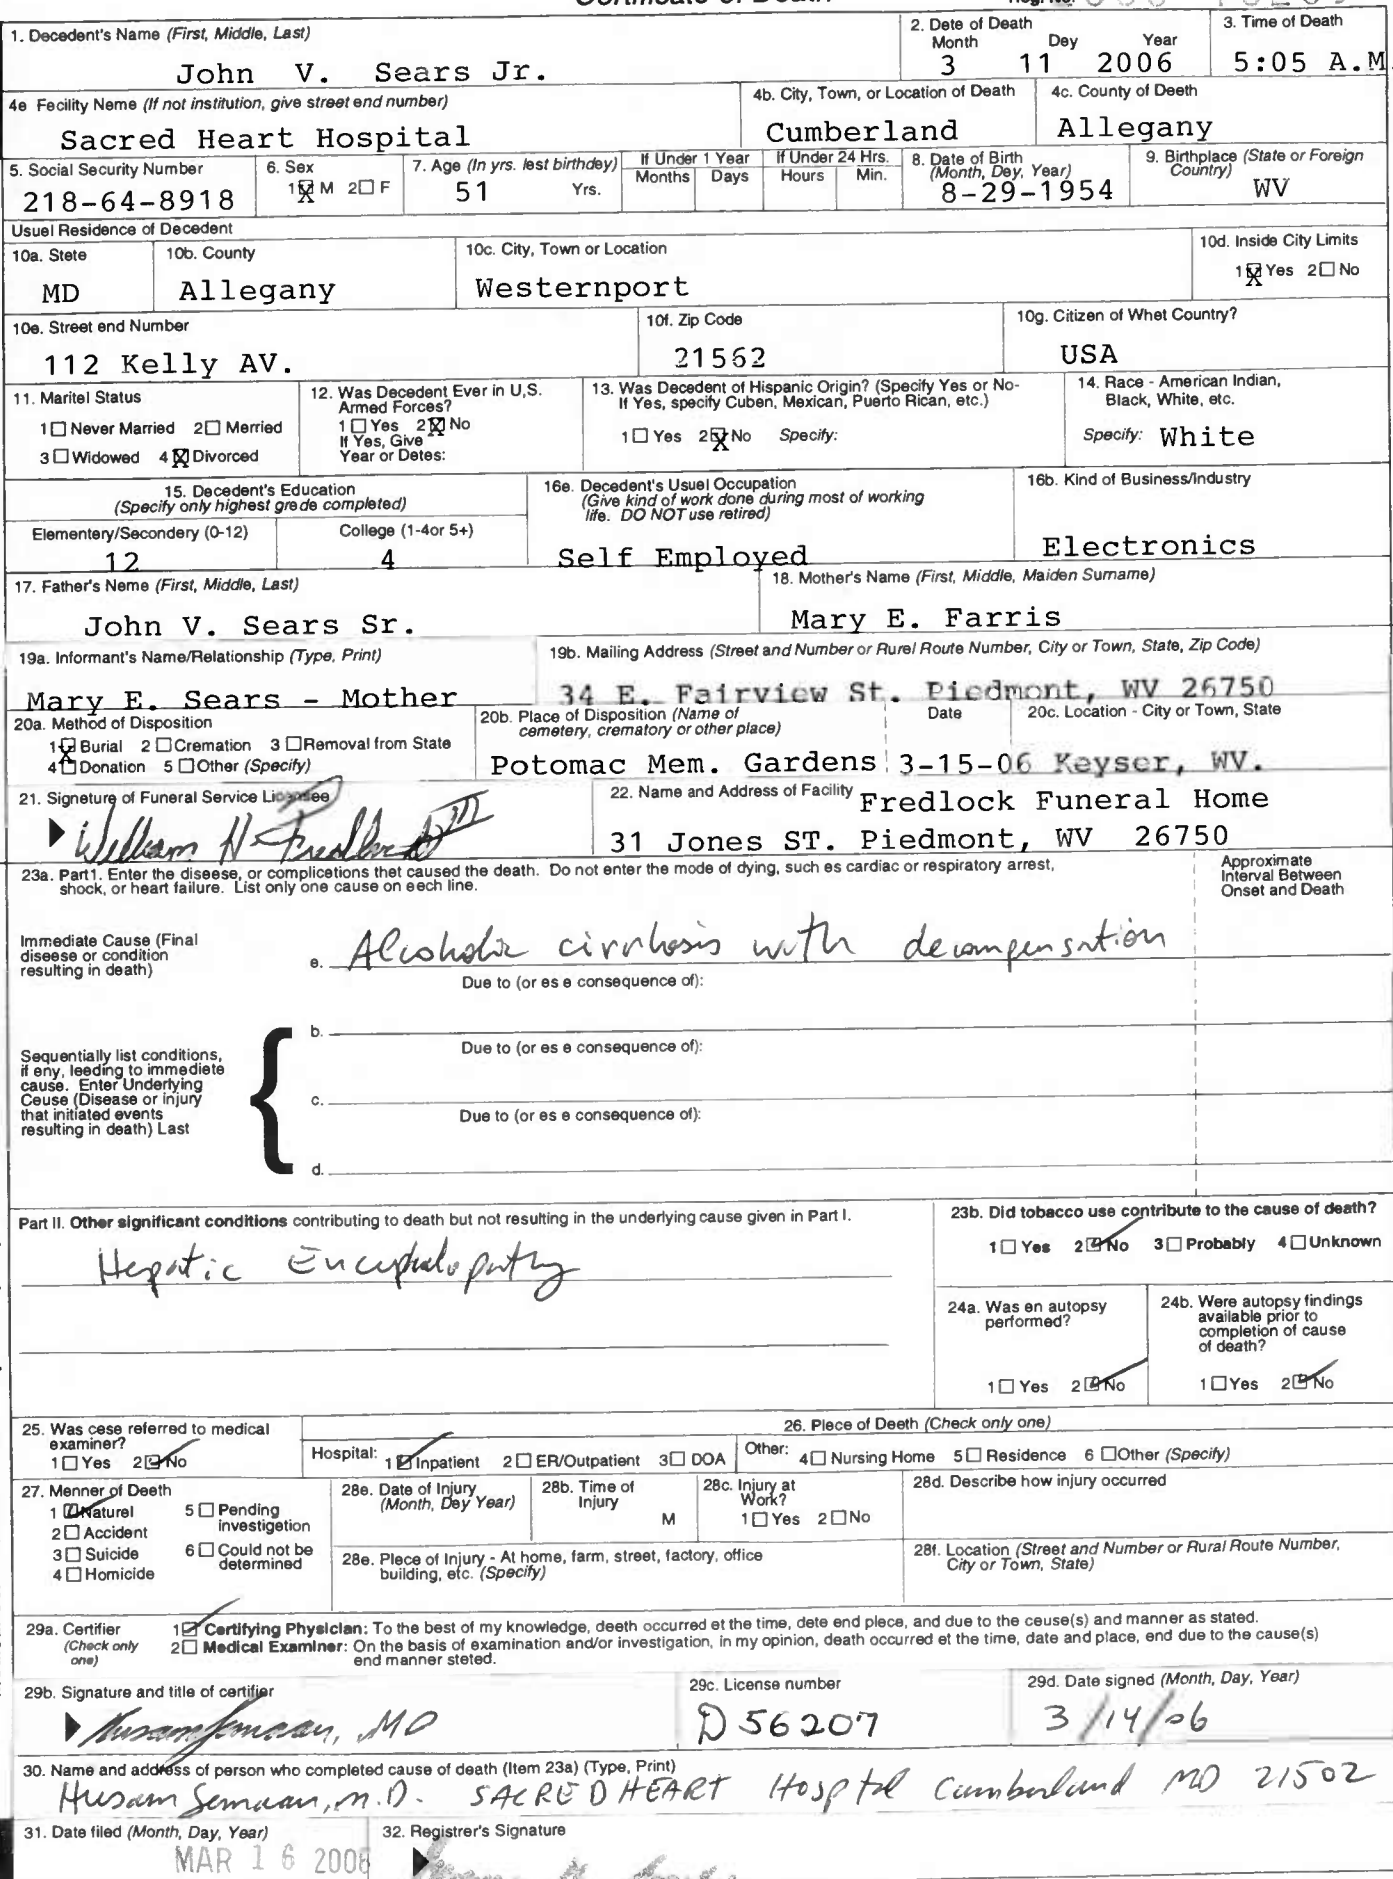 Certificate of Death
1. Decedent's Name (First, Middle, Last)
John V. Sears Jr.
2. Dete of Death
Month Dey Year
3 11 2006
3. Time of Death
5:05 A.M
4e Fecility Name (If not institution, give street end number)
Sacred Heart Hospital
4b. City, Town, or Location of Death
Cumberland
4c. County of Deeth
Allegany
5. Social Security Number
218-64-8918
6. Sex
1 M 2 F
7. Age (In yrs. lest birthdey)
51 Yrs.
If Under 1 Year
Months Days
If Under 24 Hrs.
Hours Min.
8. Date of Birth
(Month, Dey, Year)
8-29-1954
9. Birthplace (State or Foreign
Country)
WV
Usuel Residence of Decedent
10a. Stete
MD
10b. County
Allegany
10c. City, Town or Location
Westernport
10d. Inside City Limits
1 Yes 2 No
10e. Street end Number
112 Kelly AV.
10f. Zip Code
21562
10g. Citizen of Whet Country?
USA
11. Maritel Status
1 Never Married 2 Merried
3 Widowed 4 Divorced
12. Was Decedent Ever in U,S.
Armed Forces?
1 Yes 2 No
If Yes, Give
Year or Detes:
13. Was Decedent of Hispanic Origin? (Specify Yes or No-
If Yes, specify Cuben, Mexican, Puerto Rican, etc.)
1 Yes 2 No Specify:
14. Race - American Indian,
Black, White, etc.
Specify: White
15. Decedent's Education
(Specify only highest grede completed)
Elementery/Secondery (0-12)
12
College (1-4or 5+)
4
16e. Decedent's Usuel Occupation
(Give kind of work done during most of working
life. DO NOT use retired)
Self Employed
16b. Kind of Business/Industry
Electronics
17. Father's Neme (First, Middle, Last)
John V. Sears Sr.
18. Mother's Name (First, Middle, Maiden Surname)
Mary E. Farris
19a. Informant's Name/Relationship (Type, Print)
Mary E. Sears - Mother
19b. Mailing Address (Street and Number or Rurel Route Number, City or Town, State, Zip Code)
34 E. Fairview St. Piedmont, WV 26750
20a. Method of Disposition
1 Burial 2 Cremation 3 Removal from State
4 Donation 5 Other (Specify)
20b. Place of Disposition (Name of
cemetery, crematory or other place)
Potomac Mem. Gardens
Date
3-15-06
20c. Location - City or Town, State
Keyser, WV.
21. Signeture of Funeral Service Licensee
William H. Fredlock III
22. Name and Address of Facility Fredlock Funeral Home
31 Jones ST. Piedmont, WV 26750
23a. Part1. Enter the diseese, or complications thet caused the death. Do not enter the mode of dying, such es cardiac or respiratory arrest,
shock, or heart failure. List only one cause on eech line.
Approximate
Interval Between
Onset and Death
Immediate Cause (Final
diseese or condition
resulting in death)
e. Alcoholic cirrhosis with decompensation
Due to (or es e consequence of):
b.
Due to (or es e consequence of):
Sequentially list conditions,
if eny, leeding to immediete
cause. Enter Underlying
Ceuse (Disease or injury
that initiated events
resulting in death) Last
c.
Due to (or es e consequence of):
d.
Part II. Other significant conditions contributing to death but not resulting in the underlying cause given in Part I.
Hepatic Encephalopathy
23b. Did tobacco use contribute to the cause of death?
1 Yes 2 No 3 Probably 4 Unknown
24a. Was en autopsy
performed?
1 Yes 2 No
24b. Were autopsy findings
available prior to
completion of cause
of death?
1 Yes 2 No
25. Was cese referred to medical
examiner?
1 Yes 2 No
26. Plece of Deeth (Check only one)
Hospital: 1 Inpatient 2 ER/Outpatient 3 DOA Other: 4 Nursing Home 5 Residence 6 Other (Specify)
27. Menner of Deeth
1 Naturel 5 Pending
investigetion
2 Accident
3 Suicide 6 Could not be
determined
4 Homicide
28e. Date of Injury
(Month, Dey Year)
28b. Time of
Injury
M
28c. Injury at
Work?
1 Yes 2 No
28d. Describe how injury occurred
28e. Plece of Injury - At home, farm, street, factory, office
building, etc. (Specify)
28f. Location (Street and Number or Rural Route Number,
City or Town, State)
29a. Certifier
(Check only
one)
1 Certifying Physician: To the best of my knowledge, deeth occurred et the time, dete end plece, and due to the ceuse(s) and manner as stated.
2 Medical Examiner: On the basis of examination and/or investigation, in my opinion, death occurred et the time, date and place, end due to the cause(s)
end manner steted.
29b. Signature and title of certifier
Husam Semaan, MD
29c. License number
D 56207
29d. Date signed (Month, Day, Year)
3/14/06
30. Name and address of person who completed cause of death (Item 23a) (Type, Print)
Husam Semaan, M.D. SACRED HEART Hosptal Cumberland MD 21502
31. Date filed (Month, Day, Year)
MAR 16 2006
32. Registrer's Signature